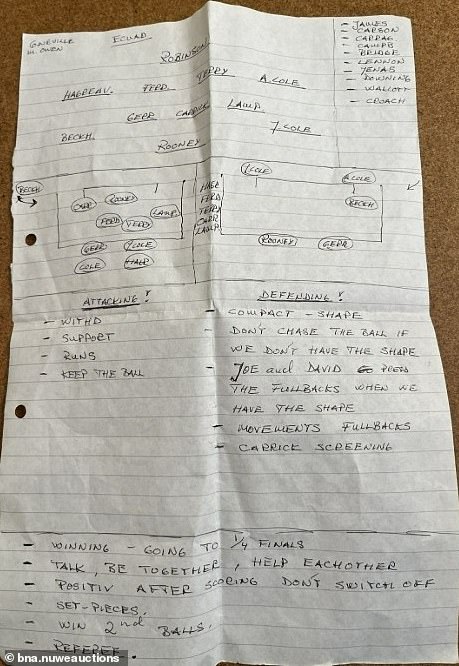 GNEVILLE
M. OWEN
ECUAD
ROBINSON
HARGREAV. FERD. TERRY A.COLE
GERR CARRICK LAMP
BECKH. J.COLE
ROONEY
- JAMES
- CARSON
- CARRAG
- CAMPB
- BRIDGE
- LENNON
- JENAS
- DOWNING
- WALCOTT
- CROACH
BECKH
CARR ROONEY
FERD TERRY LAMP
GERR J COLE
COLE
HARG
FERD
TERRY
CARR
LAMP
J COLE A COLE
BECKH
ROONEY GERR
ATTACKING!
- WITHD
- SUPPORT
- RUNS
- KEEP THE BALL
DEFENDING!
- COMPACT - SHAPE
- DON'T CHASE THE BALL IF
WE DON'T HAVE THE SHAPE
- JOE and DAVID GO PRESS
THE FULLBACKS WHEN WE
HAVE THE SHAPE
- MOVEMENTS FULLBACKS
- CARRICK SCREENING
- WINNING - GOING TO 1/4 FINALS
- TALK, BE TOGETHER, HELP EACHOTHER
- POSITIV AFTER SCORING DON'T SWITCH OFF
- SET-PIECES.
- WIN 2nd BALLS.
- REFEREE.
© bna.nuweauctions